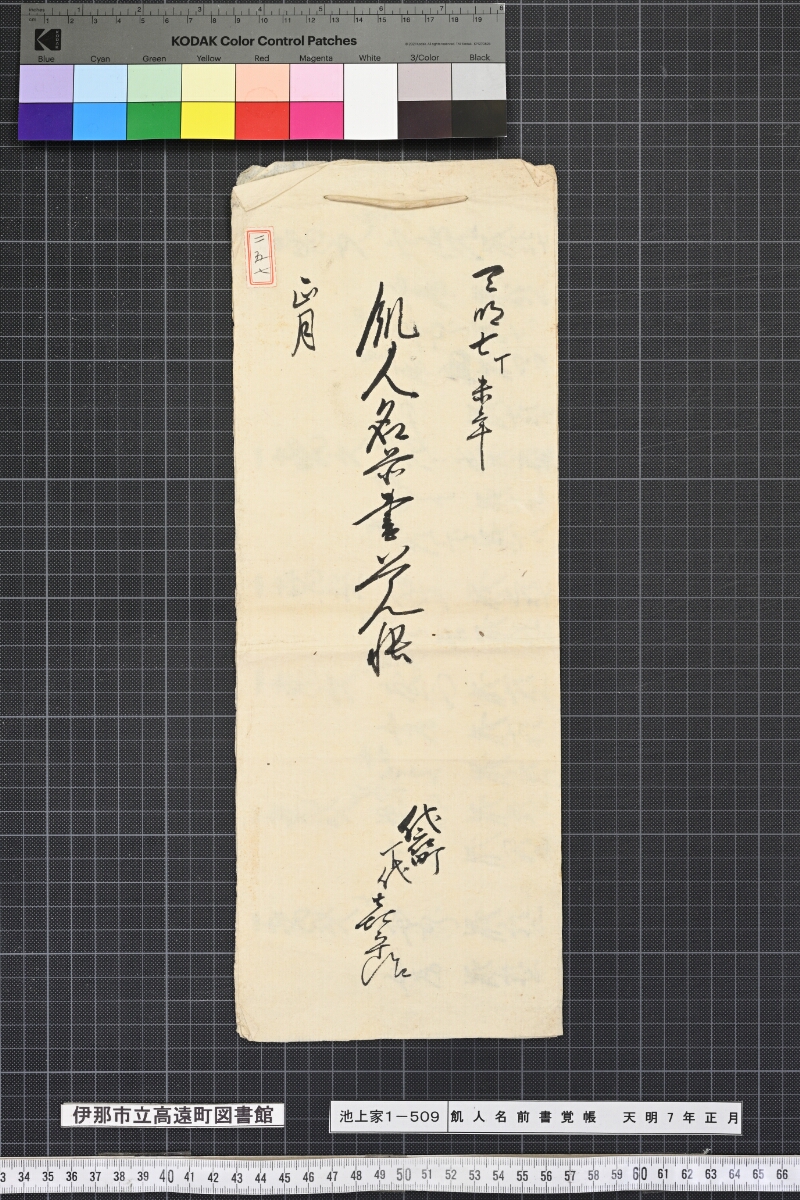 KODAK Color Control Patches
Blue Cyan Green Yellow Red Magenta White 3/Color Black
天明七丁未年
飢人名前書覚帳
正月
二五七
袋町
下代
伊那市立高遠町図書館
池上家1-509 飢人名前書覚帳 天明7年正月
34 35 36 37 38 39 40 41 42 43 44 45 46 47 48 49 50 51 52 53 54 55 56 57 58 59 60 61 62 63 64 65 66